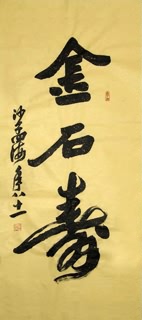 金石寿
沙孟海年八十一